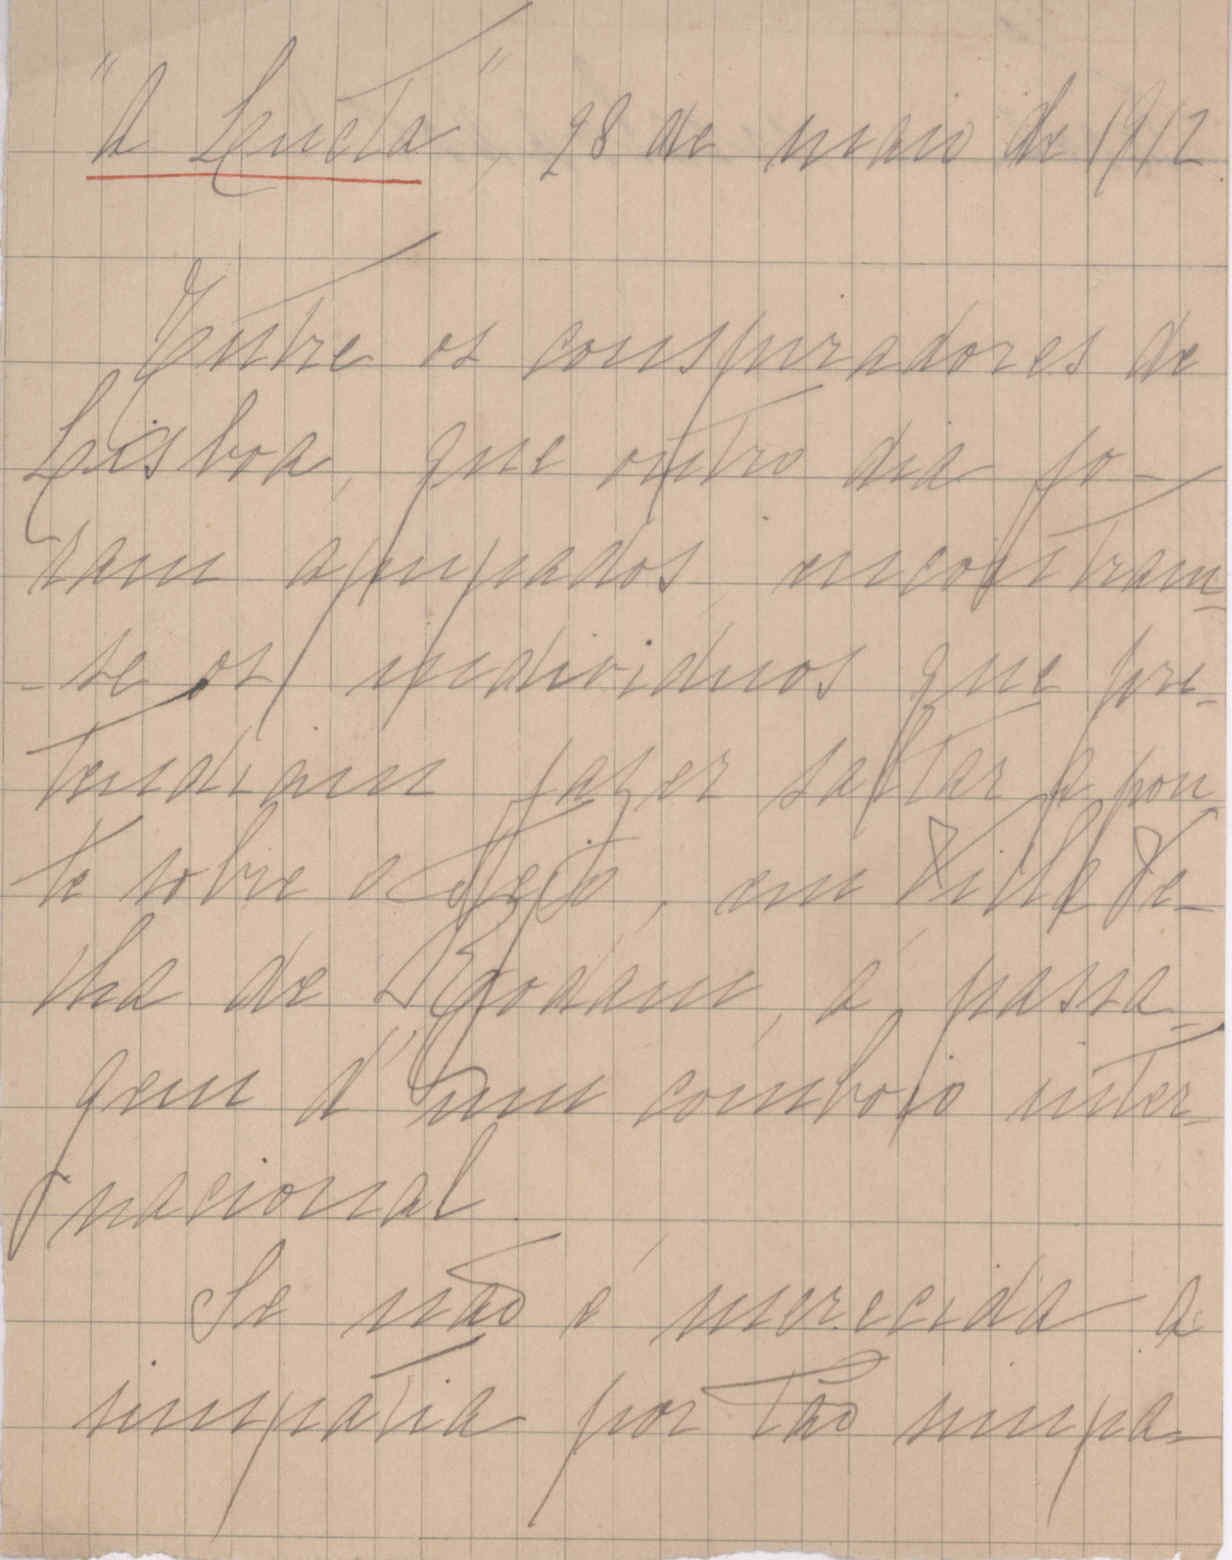 "A Lucta", 28 de maio de 1912.
Entre os conspiradores de
Lisboa, que outro dia fo-
ram apupados, encontram-
-se os individuos que pre-
tendiam fazer saltar a pon-
te sobre o Tejo, em Villa Ve-
lha de Rodam, á passa-
gem d'um comboio inter-
nacional.
Se não é merecida a
simpatia por tão simpa-